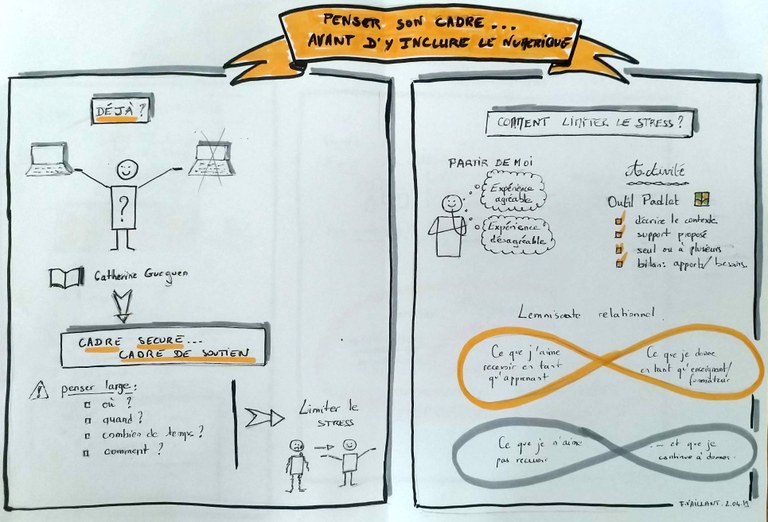 PENSER SON CADRE...
AVANT D'Y INCLURE LE NUMERIQUE
DÉJÀ ?
?
Catherine Gueguen
CADRE SECURE...
CADRE DE SOUTIEN
penser large :
où ?
quand ?
combien de temps ?
comment ?
Limiter le
STRESS
COMMENT LIMITER LE STRESS ?
PARTIR DE MOI
Expérience
agréable
Expérience
désagréable
Activité
Outil Padlet
décrire le contexte
support proposé
seul ou à plusieurs
bilan : apports / besoins
Lemniscate relationnel.
Ce que j'aime
recevoir en tant
qu'apprenant
Ce que je donne
en tant qu'enseignant/
formateur
Ce que je n'aime
pas recevoir
... et que je
continue à donner.
F.VAILLANT. 2.04.19